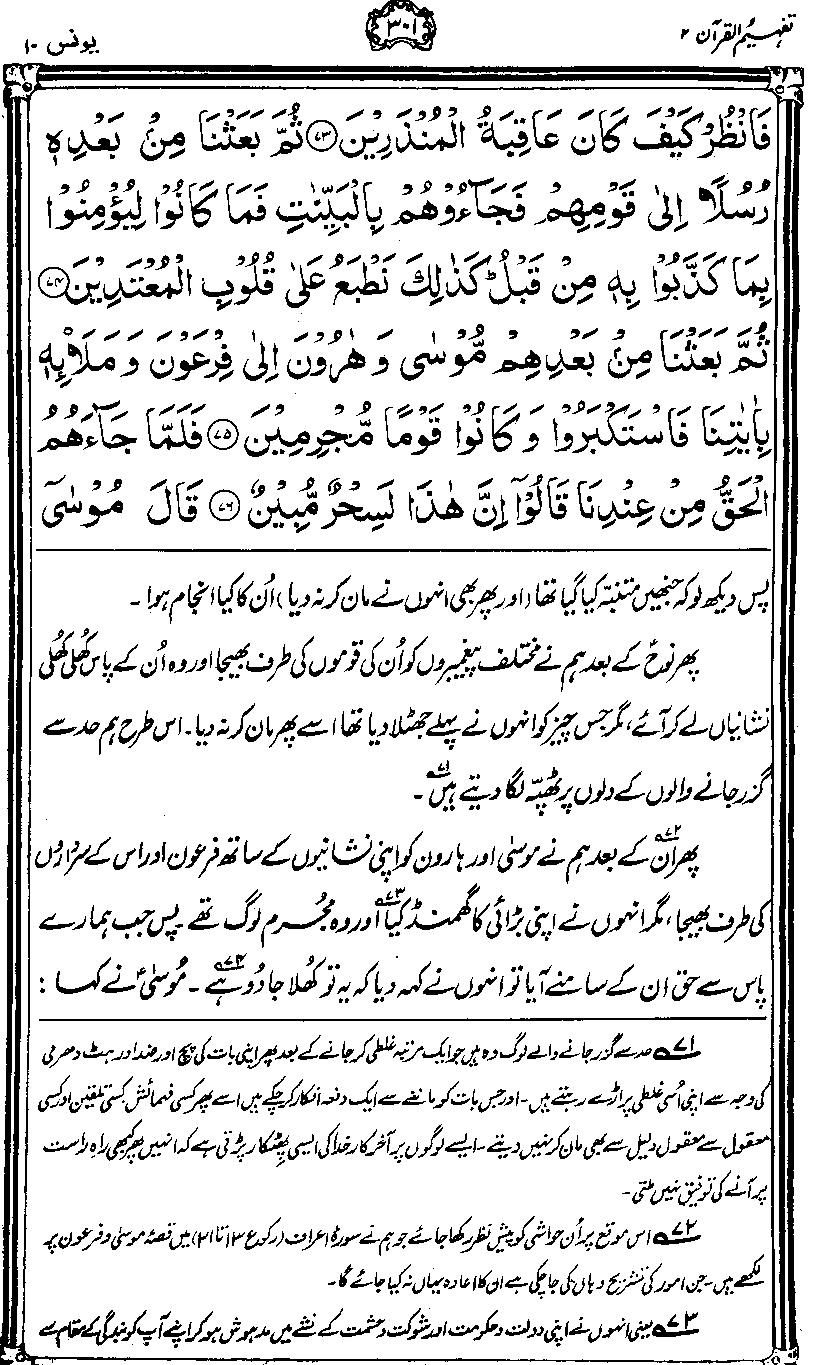 تفہیم القرآن ۲
۳۰۱
یونس ۱۰
فَانْظُرْ كَيْفَ كَانَ عَاقِبَةُ الْمُنْذَرِيْنَ ﴿۷۳﴾ ثُمَّ بَعَثْنَا مِنْۢ بَعْدِهٖ
رُسُلًا اِلٰى قَوْمِهِمْ فَجَآءُوْهُمْ بِالْبَيِّنٰتِ فَمَا كَانُوْا لِيُؤْمِنُوْا
بِمَا كَذَّبُوْا بِهٖ مِنْ قَبْلُ ؕ كَذٰلِكَ نَطْبَعُ عَلٰى قُلُوْبِ الْمُعْتَدِيْنَ ﴿۷۴﴾
ثُمَّ بَعَثْنَا مِنْۢ بَعْدِهِمْ مُّوْسٰى وَ هٰرُوْنَ اِلٰى فِرْعَوْنَ وَ مَلَا۟ئِهٖ
بِاٰيٰتِنَا فَاسْتَكْبَرُوْا وَ كَانُوْا قَوْمًا مُّجْرِمِيْنَ ﴿۷۵﴾ فَلَمَّا جَآءَهُمُ
الْحَقُّ مِنْ عِنْدِنَا قَالُوْۤا اِنَّ هٰذَا لَسِحْرٌ مُّبِيْنٌ ﴿۷۶﴾ قَالَ مُوْسٰۤى
پس دیکھ لو کہ جنھیں متنبہ کیا گیا تھا (اور پھر بھی انہوں نے مان کر نہ دیا) اُن کا کیا انجام ہوا۔
پھر نوحؑ کے بعد ہم نے مختلف پیغمبروں کو اُن کی قوموں کی طرف بھیجا اور وہ اُن کے پاس کھُلی کھُلی
نشانیاں لے کر آئے، مگر جس چیز کو انہوں نے پہلے جھٹلا دیا تھا اسے پھر مان کر نہ دیا۔ اس طرح ہم حد سے
گزر جانے والوں کے دلوں پر ٹھپّہ لگا دیتے ہیں۷۱۔
پھر۷۲ اُن کے بعد ہم نے موسیٰ اور ہارون کو اپنی نشانیوں کے ساتھ فرعون اور اس کے سرداروں
کی طرف بھیجا، مگر انہوں نے اپنی بڑائی کا گھمنڈ کیا۷۳ اور وہ مجرم لوگ تھے۔ پس جب ہمارے
پاس سے حق ان کے سامنے آیا تو انہوں نے کہہ دیا کہ یہ تو کھُلا جادُو ہے۷۴۔ مُوسیٰؑ نے کہا :
۷۱ حد سے گزر جانے والے لوگ وہ ہیں جو ایک مرتبہ غلطی کر جانے کے بعد پھر اپنی بات کی پچ اور ضد اور ہٹ دھرمی
کی وجہ سے اپنی اُسی غلطی پر اڑے رہتے ہیں۔ اور جس بات کو ماننے سے ایک دفعہ انکار کر چکے ہیں اسے پھر کسی فہمائش کسی تلقین اور کسی
معقول سے معقول دلیل سے بھی مان کر نہیں دیتے۔ ایسے لوگوں پر آخر کار خدا کی ایسی پِھٹکار پڑتی ہے کہ انہیں پھر کبھی راہِ راست
پر آنے کی توفیق نہیں ملتی۔
۷۲ اس موقع پر اُن حواشی کو پیش نظر رکھا جائے جو ہم نے سورۂ اعراف (رکوع ۱۳ تا ۲۱) میں قصۂ موسیٰ و فرعون پر
لکھے ہیں۔ جن امور کی تشریح وہاں کی جا چکی ہے ان کا اعادہ یہاں نہ کیا جائے گا۔
۷۳ یعنی انہوں نے اپنی دولت و حکومت اور شوکت و حشمت کے نشے میں مدہوش ہو کر اپنے آپ کو بندگی کے مقام سے